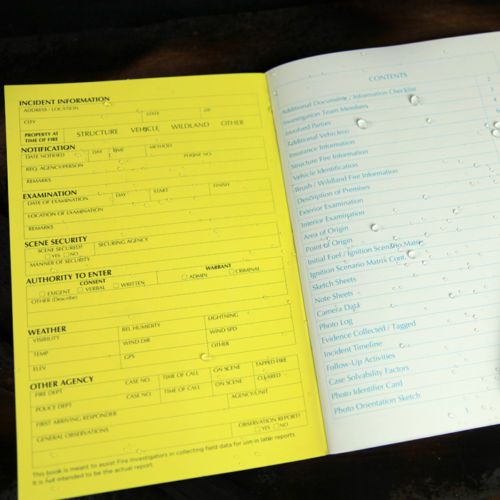 INCIDENT INFORMATION
ADDRESS / LOCATION
CITY STATE ZIP
PROPERTY AT TIME OF FIRE STRUCTURE VEHICLE WILDLAND OTHER
NOTIFICATION
DATE NOTIFIED DAY TIME METHOD
REQ. AGENCY/PERSON PHONE NO.
REMARKS
EXAMINATION
DATE OF EXAMINATION DAY START FINISH
LOCATION OF EXAMINATION
REMARKS
SCENE SECURITY
SCENE SECURED? SECURING AGENCY
YES NO
MANNER OF SECURITY
AUTHORITY TO ENTER
CONSENT WARRANT
EXIGENT VERBAL WRITTEN ADMIN CRIMINAL
OTHER (Describe)
WEATHER
VISIBILITY REL HUMIDITY LIGHTNING
TEMP WIND DIR WIND SPD
ELEV GPS OTHER
OTHER AGENCY
FIRE DEPT CASE NO. TIME OF CALL ON SCENE TAPPED FIRE
POLICE DEPT CASE NO. TIME OF CALL ON SCENE CLEARED
FIRST ARRIVING RESPONDER AGENCY/UNIT
GENERAL OBSERVATIONS OBSERVATION REPORT?
YES NO
This book is meant to assist Fire Investigators in collecting field data for use in later reports.
It is not intended to be the actual report.
CONTENTS
Additional Documents / Information Checklist
Investigation Team Members
Involved Parties
Additional Vehicles
Insurance Information
Structure Fire Information
Vehicle Identification
Brush / Wildland Fire Information
Description of Premises
Exterior Examination
Interior Examination
Area of Origin
Point of Origin
Initial Fuel / Ignition Scenario Matrix
Ignition Scenario Matrix Cont.
Sketch Sheets
Note Sheets
Camera Data
Photo Log
Evidence Collected / Tagged
Incident Timeline
Follow-Up Activities
Case Solvability Factors
Photo Identifier Card
Photo Orientation Sketch